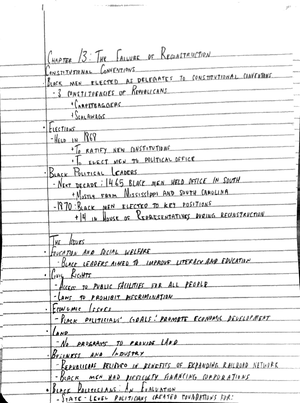 Chapter 13: The Failure of Reconstruction
Constitutional Conventions
Black men elected as delegates to constitutional conventions
- 3 constituencies of Republicans
• Carpetbaggers
• Scalawags
• Elections
- Held in 1868
• To ratify new constitutions
• To elect men to political office
• Black Political Leaders
- Next decade: 1465 black men held office in South
• Mostly from Mississippi and South Carolina
- 1970: Black men elected to key positions
• 14 in House of Representatives during Reconstruction
The Issues
Education and Social Welfare
- Black leaders aimed to improve literacy and education
• Civil Rights
- Access to public facilities for all people
- Laws to prohibit discrimination
• Economic Issues
- Black politicians' goals: promote economic development
• Land
- No programs to provide land
• Business and Industry
- Republicans believed in benefits of expanding railroad network
- Black men had difficulty financing corporations
• Black Politicians: An Evaluation
- State-level politicians created foundations for: